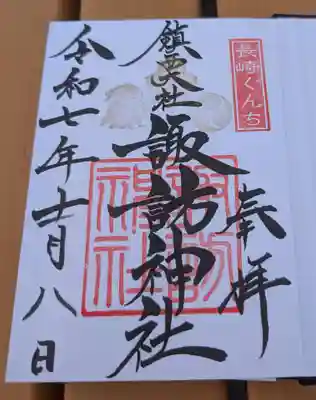 長崎くんち
奉拝
鎮西大社
諏訪神社
諏訪
神社
令和七年十月八日